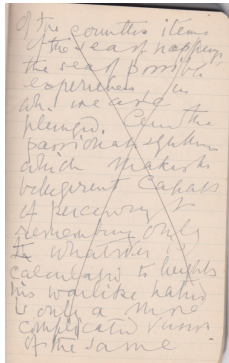 of the countless items
of the sea of happenings
the sea of possible
experiences in
wh. we are
plunged. Cend the
passionate
which makes the
belligerent capable
of perceiving &
remembering only
whatever is
calculated to heighten
his warlike hatred
is only a more
complicated version
of the same